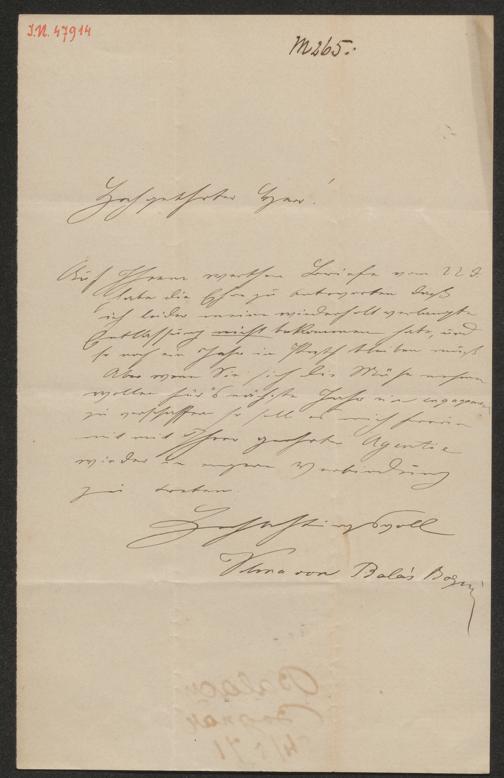 I.N. 47914
M265.
Hochgeehrter Herr!
Auf Ihren werthen Briefe vom 22 d.
habe die Ehre zu antworten daß
ich leider meine wiederholt verlangte
Entlassung nicht bekommen habe, und
so noch ein Jahr in Pesth bleiben muß
Aber wenn Sie sich die Mühe nehmen
wollen für's nächste Jahr ein
zu verschaffen so soll es mich freuen
mit mit Ihrer geehrten Agentie
wieder in engere Verbindung
zu treten.
Hochachtungsvoll
Vilma von Balás Bognár